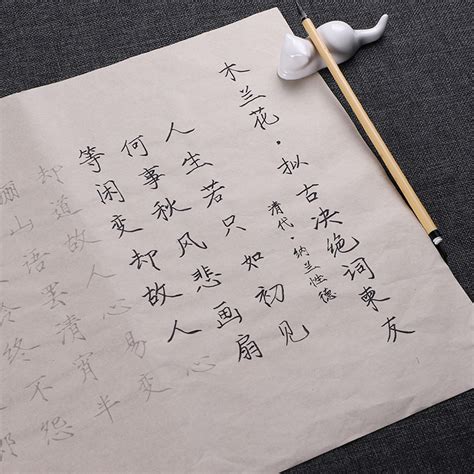 木兰花·拟古决绝词柬友
清代·纳兰性德
人生若只如初见
何事秋风悲画扇
等闲变却故人心
却道故人心易变
骊山语罢清宵半
终不怨